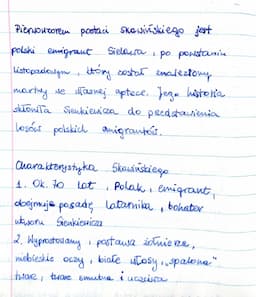 Pierwowzorem postaci Skawińskiego jest
polski emigrant Sielawa, po powstaniu
listopadowym, który został znaleziony
martwy we własnej aptece. Jego historia
skłoniła Sienkiewicza do przedstawienia
losów polskich emigrantów.
Charakterystyka Skawińskiego
1. Ok. 70 lat, Polak, emigrant,
obejmuje posadę latarnika, bohater
utworu Sienkiewicza
2. Wyprostowany, postawa żołnierza,
niebieskie oczy, białe włosy, „spalona"
twarz, twarz smutna i uczciwa